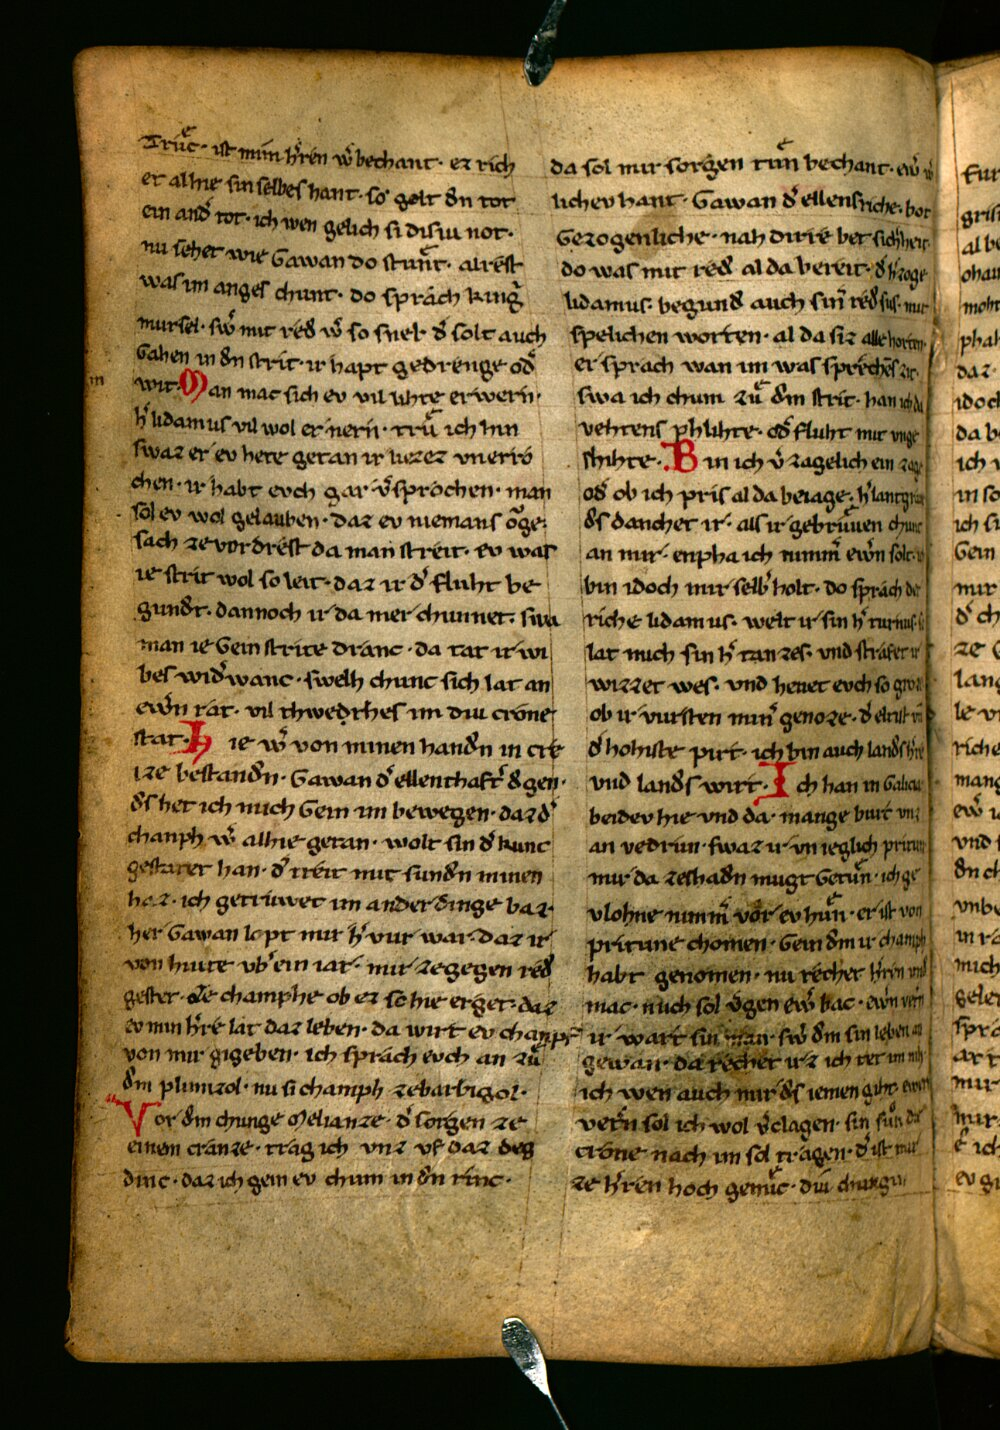 Truͤc · ist min h̾ren v̾ bechant · ez rich
er alhie sin selbes hant · so gelt dn tot
ein and̾ tot · ich wen gelich si disiu not ·
nu sehet wie Gawan do stunͤt · alrest
was im anges chunt · do sprach king̾
mursel · sw̾ mit red w̾ so snel · d̾ solt auch
Gahen in dn strit · ir hapt gedrenge · od̾
wit · Man mac sich ev vil lihte erwern ·
h̾ lidamus vil wol ernern · truͤ ich hin
swaz er ev hete getan ir liezez vnerro
chen · ir habt evch gar v̾sprochen · man
sol ev wol gelauben · daz ev niemans oͮge ·
sach ze vordrest da man streit · ev was
ie strit wol so leit · daz ir d̾ fluht be
gundt · dannoch ir da mer chunnet · swa
man ie Gein strite dranc · da tat ir wi
bes wid̾wanc · swelh chunc sich lat an
ew̾n rat · vil thwedrhes im diu crone
stat · Hie w̾ von minen handn in cre
ize bestandn · Gawan d̾ ellenthaft̾ d gen ·
ds het ich mich Gein im bewegen · daz d̾
chanph w̾ alhie getan · wolt sin d̾ kunc
gestatet han · d̾ treit mit sundn minen
haz · ich getruwet im ander dinge baz ·
her Gawan lopt mir h̾ vur war · daz ir
von hiute vb̾ ein iar · mir ze gegen red
gester · ze champhe ob ez so hie erget · daz
ev min h̾re lat daz leben · da wirt ev champf
von mir gigeben · ich sprach evch an zuͤ
dm plimizol · nu si champh ze barbigol ·
Vor dm chunge Melianze · d̾ sorgen ze
einem cranze · trag ich vnz vf daz deg
dinc · daz ich gein ev chum in dn rinc ·
da sol mir sorgen tuͤn bechant · ew̾ w̾
lich ev hant · Gawan d̾ ellensriche · bot
Gezogenliche · nah dirre bet sichheit ·
do was mit red al da bereit · d̾ h̾zoge
lidamus · begund auch sin̾ red sus · mit
spelichen worten · al da siz alle horten ·
er sprach wan im was sprechens zit ·
swa ich chum zuͤ dm strit · han ich da
vehtens phlihte · od̾ fluht mit vnge
shihte · Bin ich v̾zagelich ein zage
od̾ ob ich pris al da beiage · h̾ lantgrave
ds danchet ir · als ir gebruͤuen chunt
an mir · enpha ich nimm̾ ew̾n solt · ich
bin idoch mir selb̾ holt · do sprach der
riche lidamus · welt ir sin h̾ turnus · so
lat mich sin h̾ tranzes · vnd strafet ir
wizzet wes · vnd hevet evch so groz
ob ir vursten min̾ genoze · d̾
d̾ hohiste pirt · ich bin auch lands h̾re
vnd lands wirt · Ich han in Galicia
beidev hie vnd da · mange burt vnz
an vedrun · swaz ir vn ieglich pritun
mir da zeshadn mugt Getuͤn · ich ge
vlohne nimm̾ vor ev huͤn · er ist von
pritune chomen · Gein dm ir champh
habt genomen · nu rechet h̾ren vnd
mac · mich sol v̾gen ew̾ bac · ew̾n vetrn
ir wart sin man · sw̾ dm sin leben an
gewan · da rechet irz ich tet im niht
ich wen auch mir ds iemen giht · ewern
vetrn sol ich wol v̾clagen · sin suͤn die
crone nach im sol tragen · d̾ ist mir
ze h̾ren hoch genuͤc · diu chungin